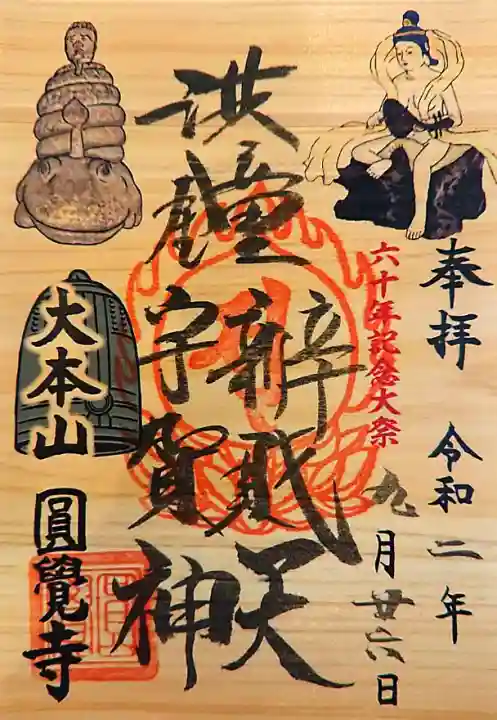 奉拝　令和二年
六十年記念大祭
九月廿六日
洪鐘
辨財天
宇賀神
大本山
圓覺寺